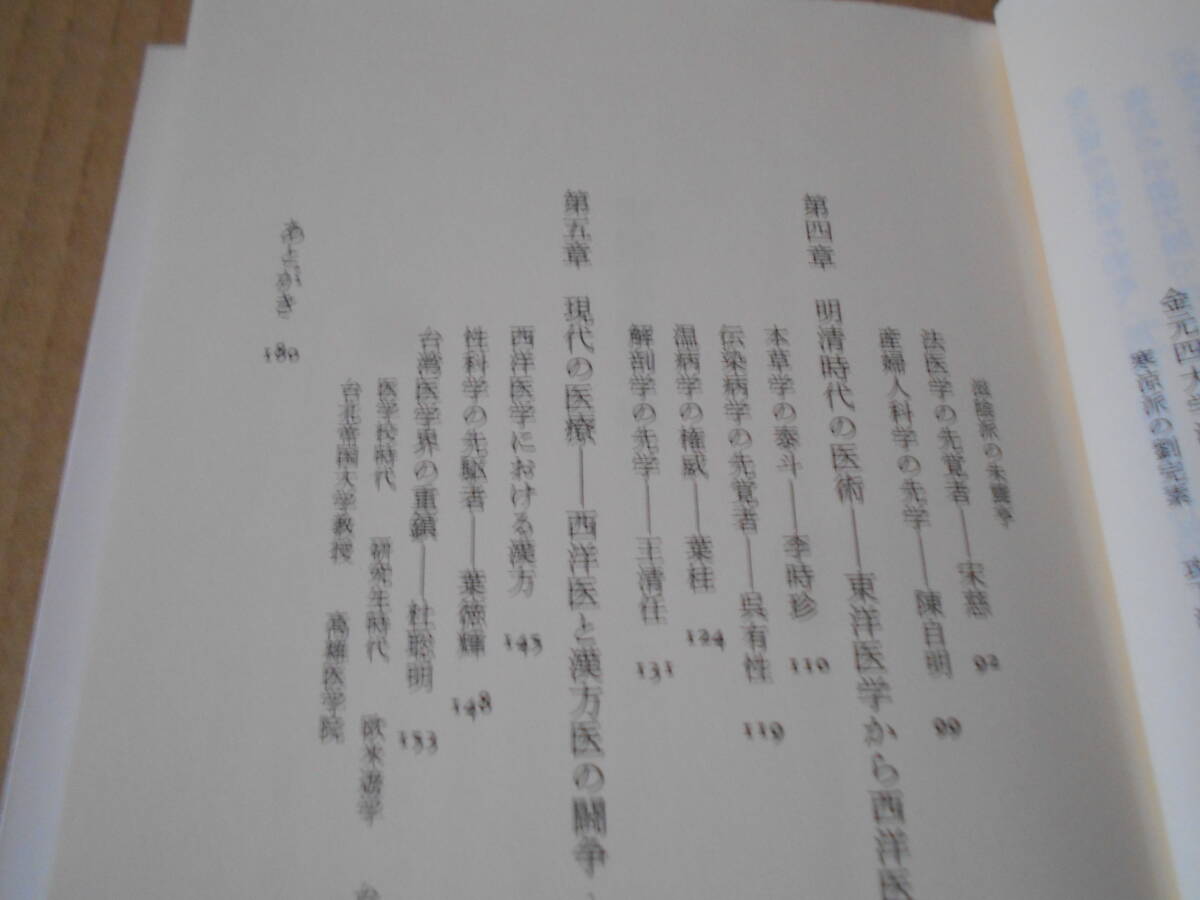 金元四大
寒涼派の劉完素
滋陰派の朱震亨
法医学の先覚者――宋慈 92
産婦人科学の先学――陳自明 99
第四章 明清時代の医術――東洋医学から西洋医
本草学の泰斗――李時珍 110
伝染病学の先覚者――呉有性 119
温病学の権威――葉桂 124
解剖学の先学――王清任 131
第五章 現代の医療――西洋医と漢方医の闘争
西洋医学における漢方 145
性科学の先駆者――葉徳輝 148
台湾医学界の重鎮――杜聡明 153
医学校時代 研究生時代 欧米遊学
台北帝国大学教授 高雄医学院
あとがき 180